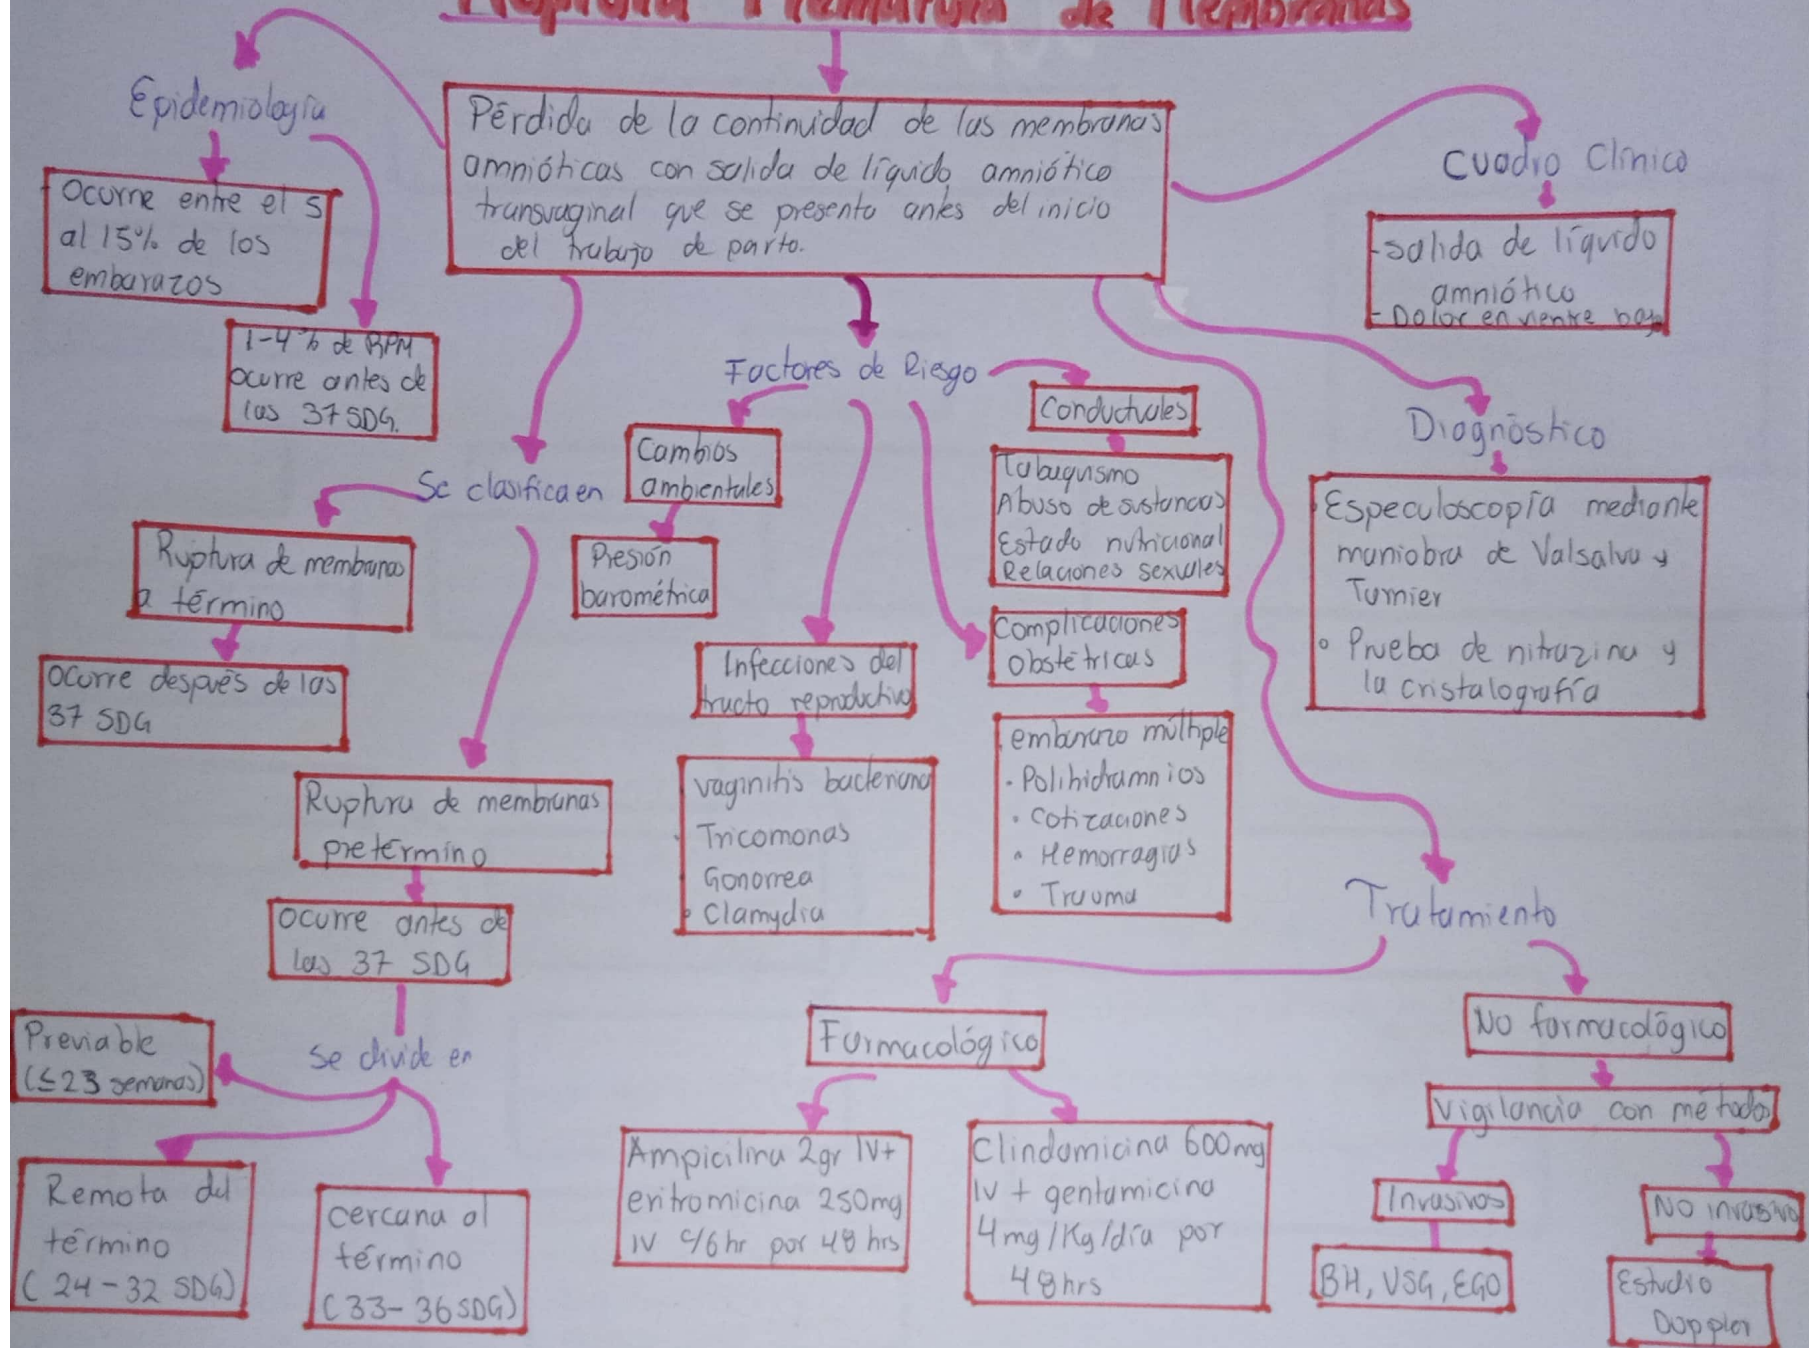 Ruptura Prematura de Membranas
Pérdida de la continuidad de las membranas
amnióticas con salida de líquido amniótico
transvaginal que se presenta antes del inicio
del trabajo de parto.
Epidemiología
Ocurre entre el 5
al 15% de los
embarazos
1-4% de RPM
ocurre antes de
las 37 SDG.
Se clasifica en
Ruptura de membranas
a término
Ocurre después de las
37 SDG
Ruptura de membranas
pretérmino
Ocurre antes de
las 37 SDG
Se divide en
Previable
(≤23 semanas)
Remota del
término
(24-32 SDG)
cercana al
término
(33-36 SDG)
Factores de Riesgo
Cambios
ambientales
Presión
barométrica
Infecciones del
tracto reproductivo
vaginitis bacteriana
Tricomonas
Gonorrea
• Clamydia
Conductuales
Tabaquismo
Abuso de sustancias
Estado nutricional
Relaciones sexuales
Complicaciones
Obstétricas
embarazo múltiple
• Polihidramnios
• Cotizaciones
• Hemorragias
• Trauma
Cuadro Clínico
-Salida de líquido
amniótico
- Dolor en vientre bajo
Diagnóstico
Especuloscopía mediante
maniobra de Valsalva y
Turnier
• Prueba de nitrazina y
la cristalografía
Tratamiento
Farmacológico
Ampicilina 2gr IV+
eritromicina 250mg
IV c/6hr por 48 hrs
Clindamicina 600mg
IV + gentamicina
4mg/Kg/día por
48hrs
No farmacológico
Vigilancia con métodos
Invasivos
BH, VSG, EGO
No invasivo
Estudio
Doppler